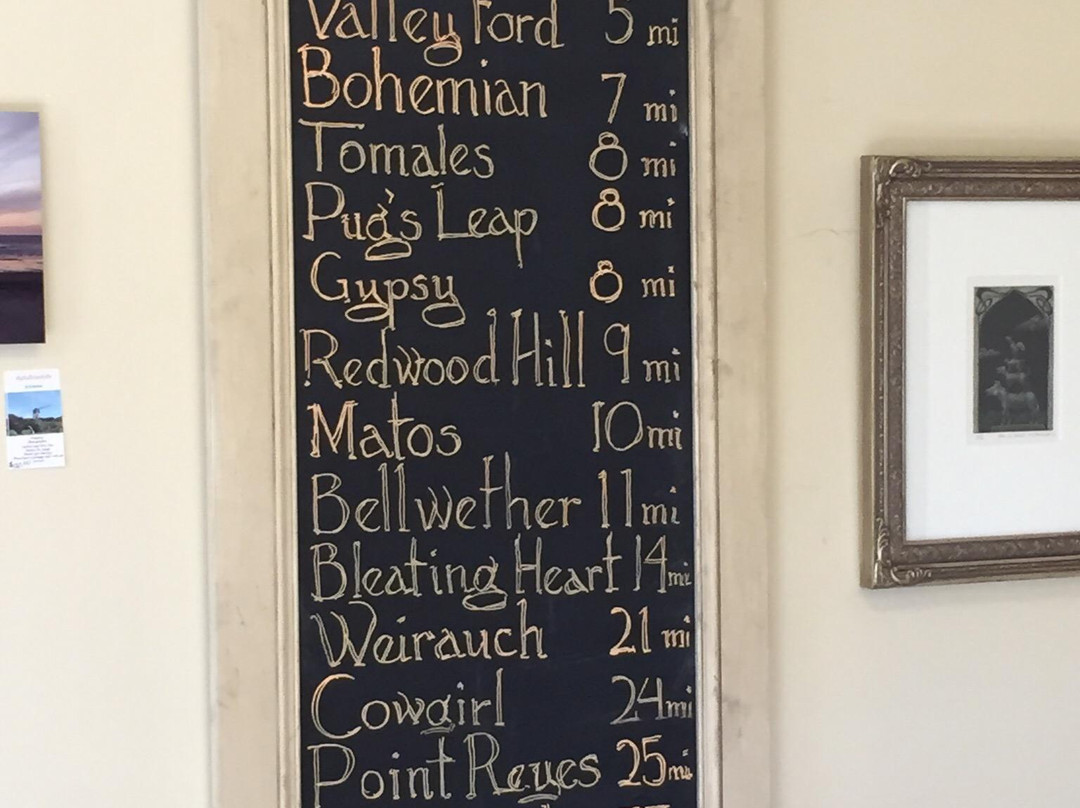 Valley Ford 5 mi
Bohemian 7 mi
Tomales 8 mi
Pug's Leap 8 mi
Gypsy 8 mi
Redwood Hill 9 mi
Matos 10 mi
Bellwether 11 mi
Bleating Heart 14 mi
Weirauch 21 mi
Cowgirl 24 mi
Point Reyes 25 mi